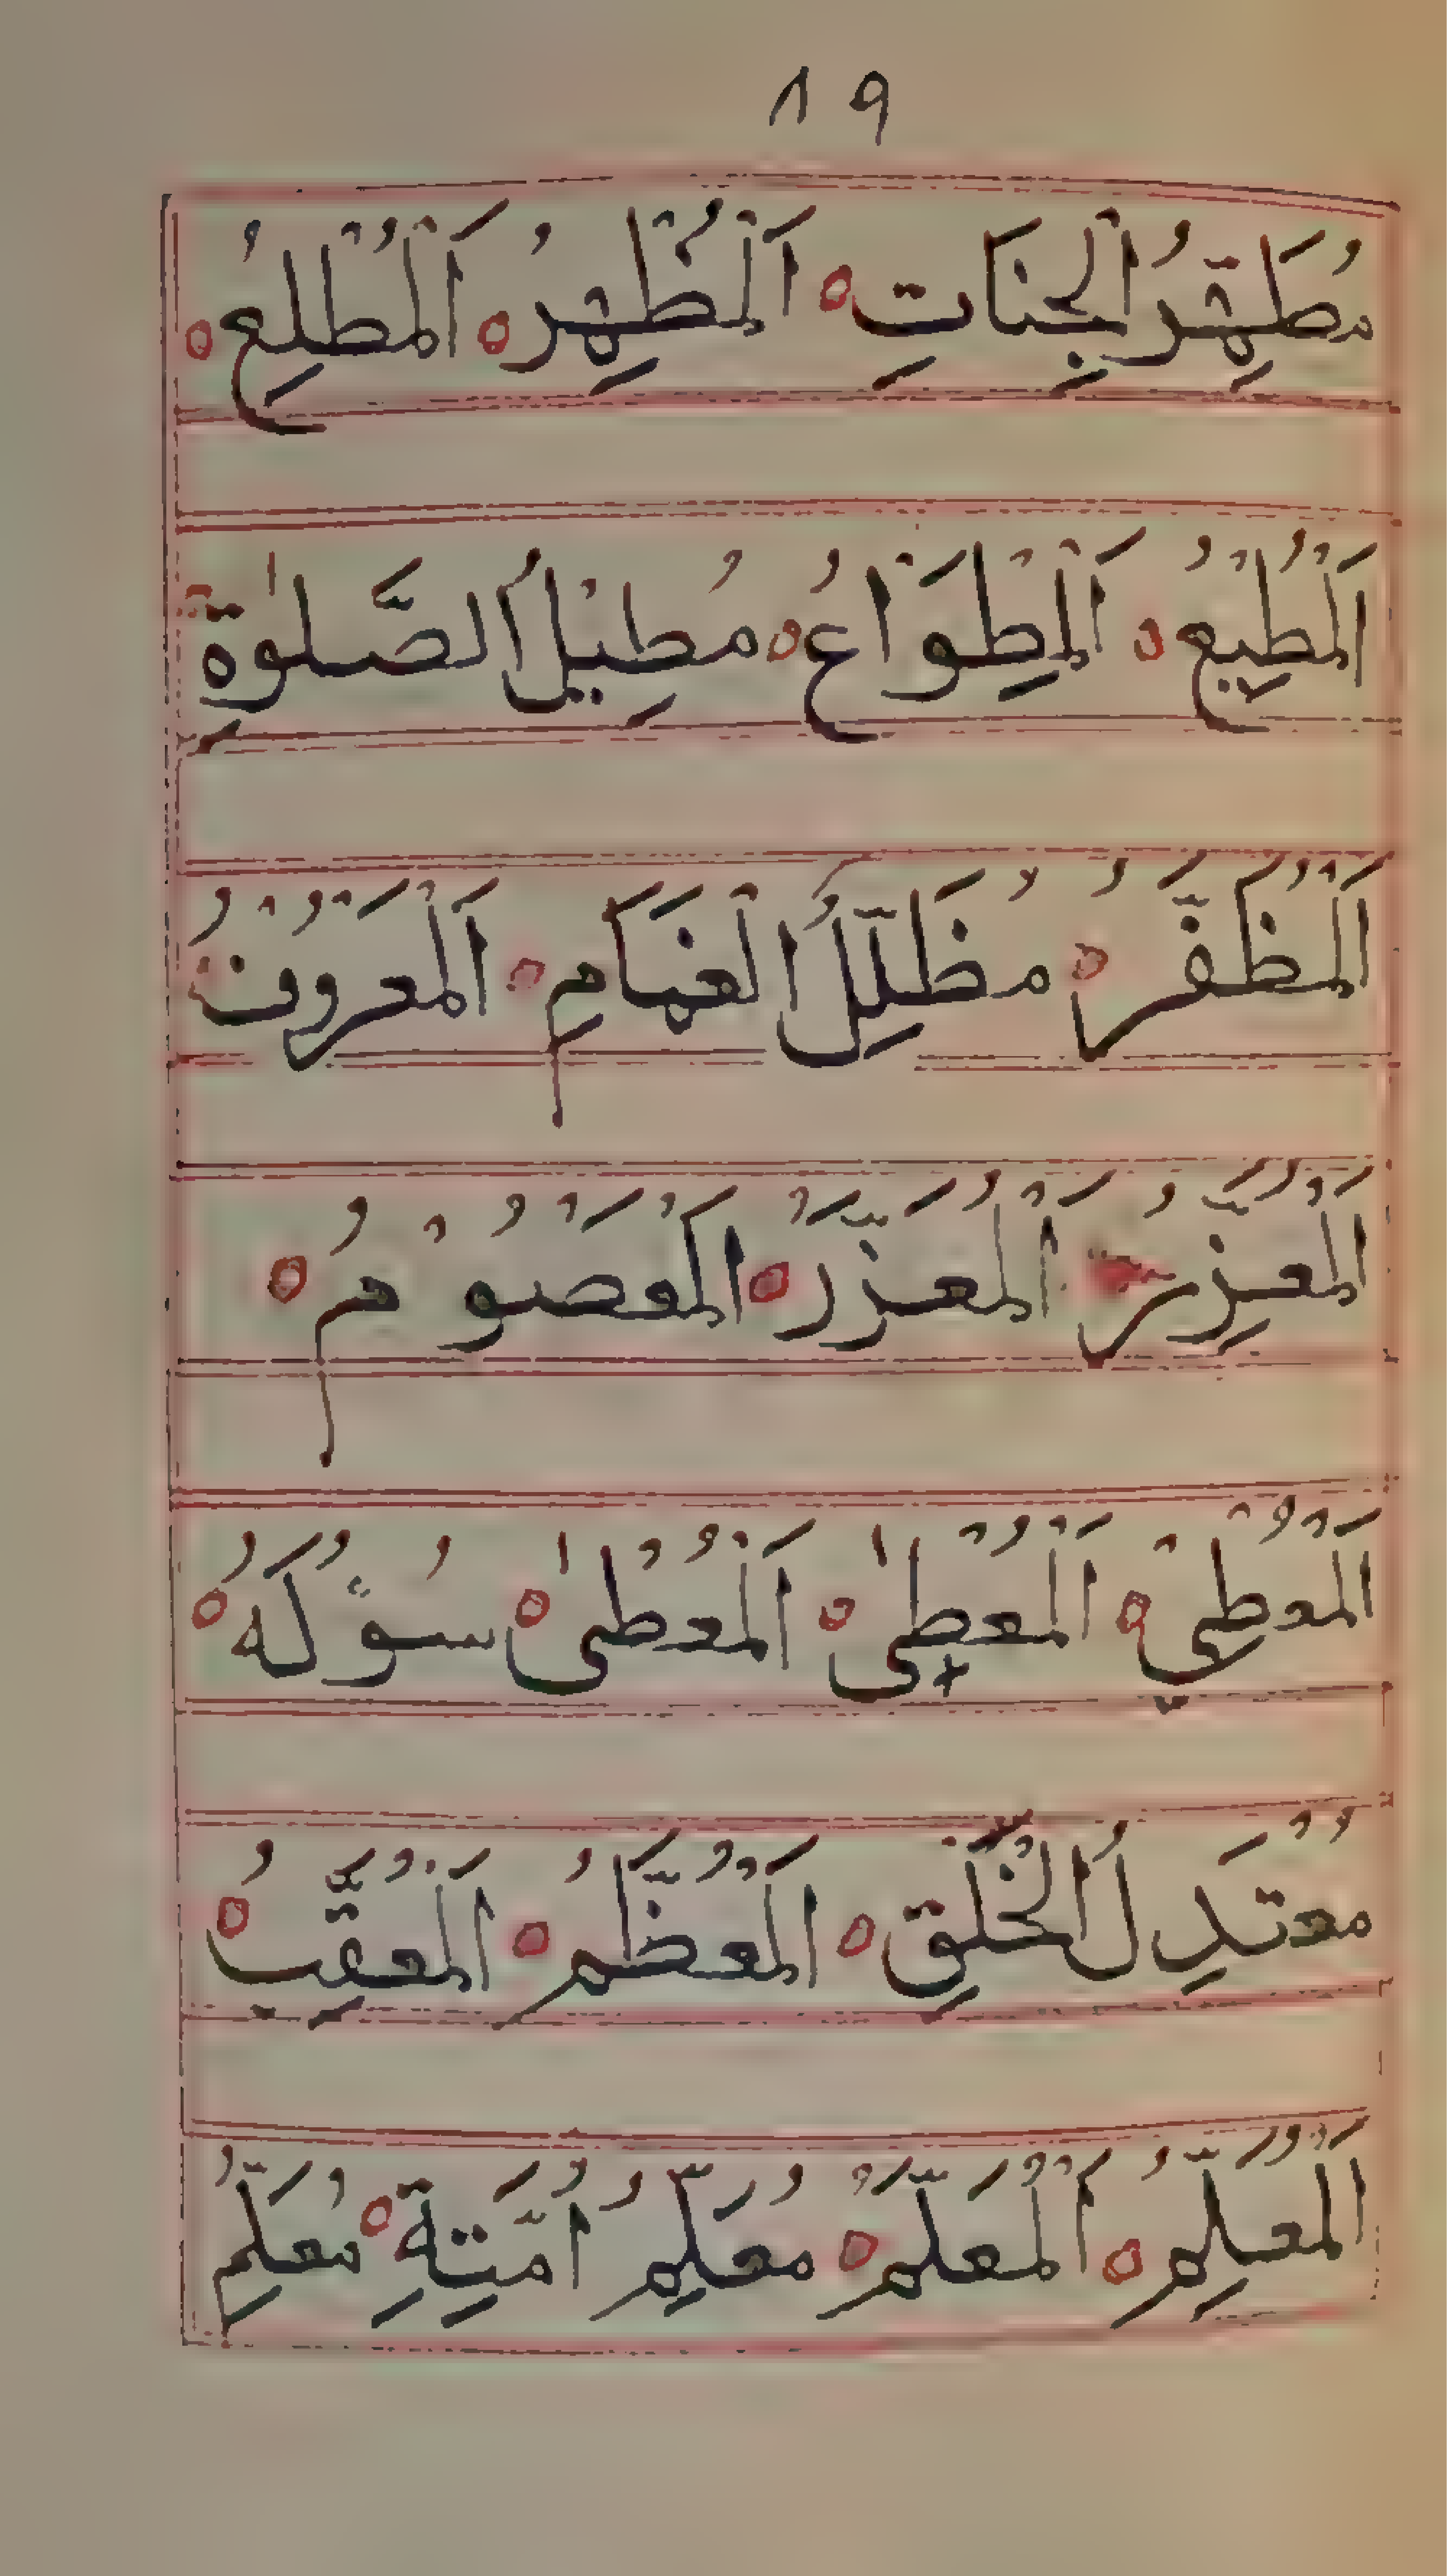 ٨٩
مُطَهِّرُ الْجَنَاتِ ○ اَلْمُظْهِرُ ○ اَلْمُطْلِعُ ○
اَلْمُطِيْعُ ○ اَلْمِطْوَاعُ ○ مُطِيْلُ الصَّلٰوةِ
اَلْمُظَفَّرُ ○ مُظَلِّلُ الْغَمَامِ ○ اَلْمَعْرُوْفُ
اَلْمُعَزِّزُ اَلْمُعَزَّرُ ○ اَلْمَعْصُوْمُ ○
اَلْمُعْطِيْ ○ اَلْمُعْطٰى ○ اَلْمُعْطٰى سُوْلَهُ ○
مُعْتَدِلُ الْخَلْقِ ○ اَلْمُعَظَّمُ ○ اَلْمُعَقِّبُ ○
اَلْمُعَلِّمُ ○ اَلْمُعَلَّمُ ○ مُعَلِّمُ اُمَّتِهٖ ○ مُعَلِّمُ